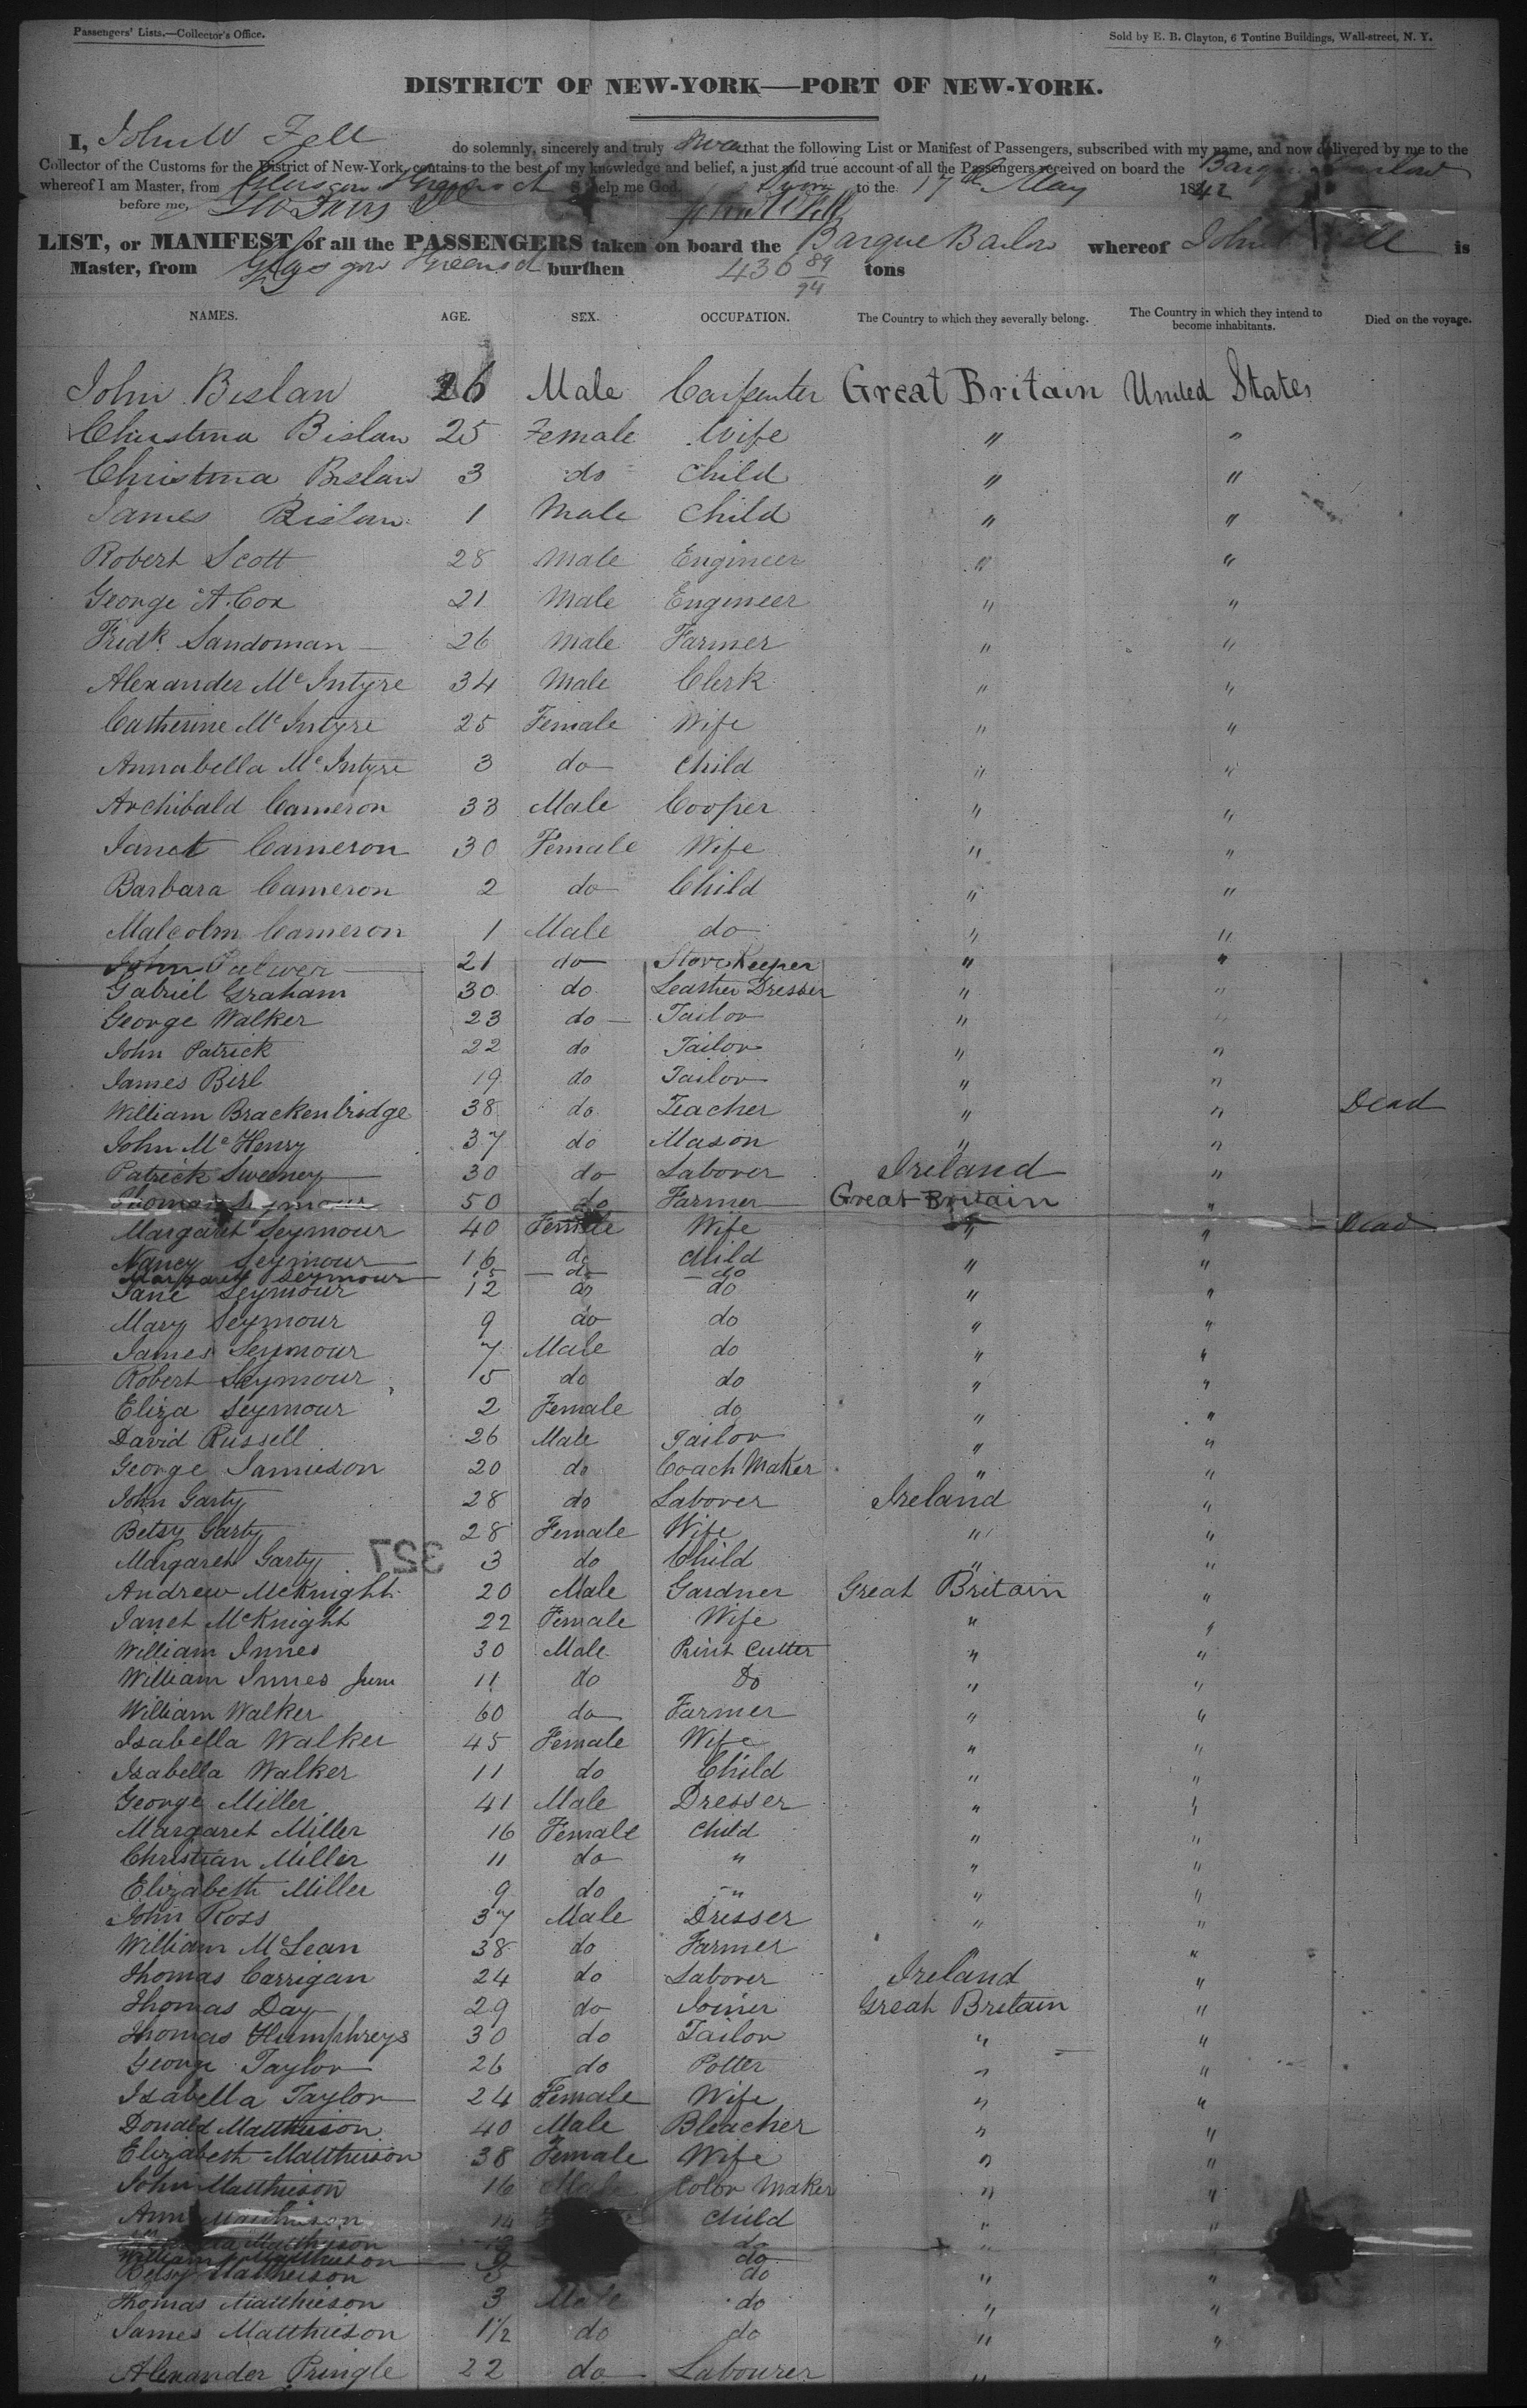 Passengers' Lists.—Collector's Office.
Sold by E. B. Clayton, 6 Tontine Buildings, Wall-street, N. Y.
DISTRICT OF NEW-YORK—PORT OF NEW-YORK.
I, John W Fell do solemnly, sincerely and truly that the following List or Manifest of Passengers, subscribed with my name, and now delivered by me to the
Collector of the Customs for the District of New-York, contains to the best of my knowledge and belief, a just and true account of all the Passengers received on board the Barque
whereof I am Master, from Glasgow help me God. to the 17th May 1842
before me,
LIST, or MANIFEST of all the PASSENGERS taken on board the Barque whereof John Fell is
Master, from Glasgow burthen 436 89/94 tons
NAMES. AGE. SEX. OCCUPATION. The Country to which they severally belong. The Country in which they intend to become inhabitants. Died on the voyage.
John Bislan 26 Male Carpenter Great Britain United States
Christina Bislan 25 Female Wife " "
Christina Bislan 3 do Child " "
James Bislan 1 Male Child " "
Robert Scott 28 Male Engineer " "
George A. Cox 21 Male Engineer " "
Fridk. Sandoman 26 Male Farmer " "
Alexander McIntyre 34 Male Clerk " "
Catherine McIntyre 25 Female Wife " "
Annabella McIntyre 3 do Child " "
Archibald Cameron 33 Male Cooper " "
Janet Cameron 30 Female Wife " "
Barbara Cameron 2 do Child " "
Malcolm Cameron 1 Male do " "
John 21 do Store Keeper " "
Gabriel Graham 30 do Leather Dresser " "
George Walker 23 do Tailor " "
John Patrick 22 do Tailor " "
James 19 do Tailor " "
William Brackenbridge 38 do Teacher " " Dead
John McHenry 37 do Mason " "
Patrick Sweeney 30 do Laborer Ireland "
Thomas Seymour 50 do Farmer Great Britain "
Margaret Seymour 40 Female Wife " " Dead
Nancy Seymour 16 do Child " "
Margaret Seymour 15 do do
Jane Seymour 12 do do " "
Mary Seymour 9 do do " "
James Seymour 7 Male do " "
Robert Seymour 5 do do " "
Eliza Seymour 2 Female do " "
David Russell 26 Male Tailor " "
George Jamieson 20 do Coach Maker " "
John Garty 28 do Laborer Ireland "
Betsy Garty 28 Female Wife " "
Margaret Garty 3 do Child " "
327
Andrew McKnight 20 Male Gardner Great Britain "
Janet McKnight 22 Female Wife " "
William Innes 30 Male Print Cutter " "
William Innes Junr 11 do Do " "
William Walker 60 do Farmer " "
Isabella Walker 45 Female Wife " "
Isabella Walker 11 do Child " "
George Miller 41 Male Dresser " "
Margaret Miller 16 Female Child " "
Christian Miller 11 do " " "
Elizabeth Miller 9 do " " "
John Ross 37 Male Dresser " "
William McLean 38 do Farmer "
Thomas Carrigan 24 do Laborer Ireland "
Thomas Day 29 do Joiner Great Britain "
Thomas Humphreys 30 do Tailor " "
George Taylor 26 do Potter " "
Isabella Taylor 24 Female Wife " "
Donald Matthieson 40 Male Bleacher " "
Elizabeth Matthieson 38 Female Wife " "
John Matthieson 16 Male Color Maker " "
Ann Matthieson 14 Child " "
Matthieson do "
William Matthieson 9 do
Betsy Matthieson do " "
Thomas Matthieson 3 Male do " "
James Matthieson 1½ do do " "
Alexander Pringle 22 do Labourer "